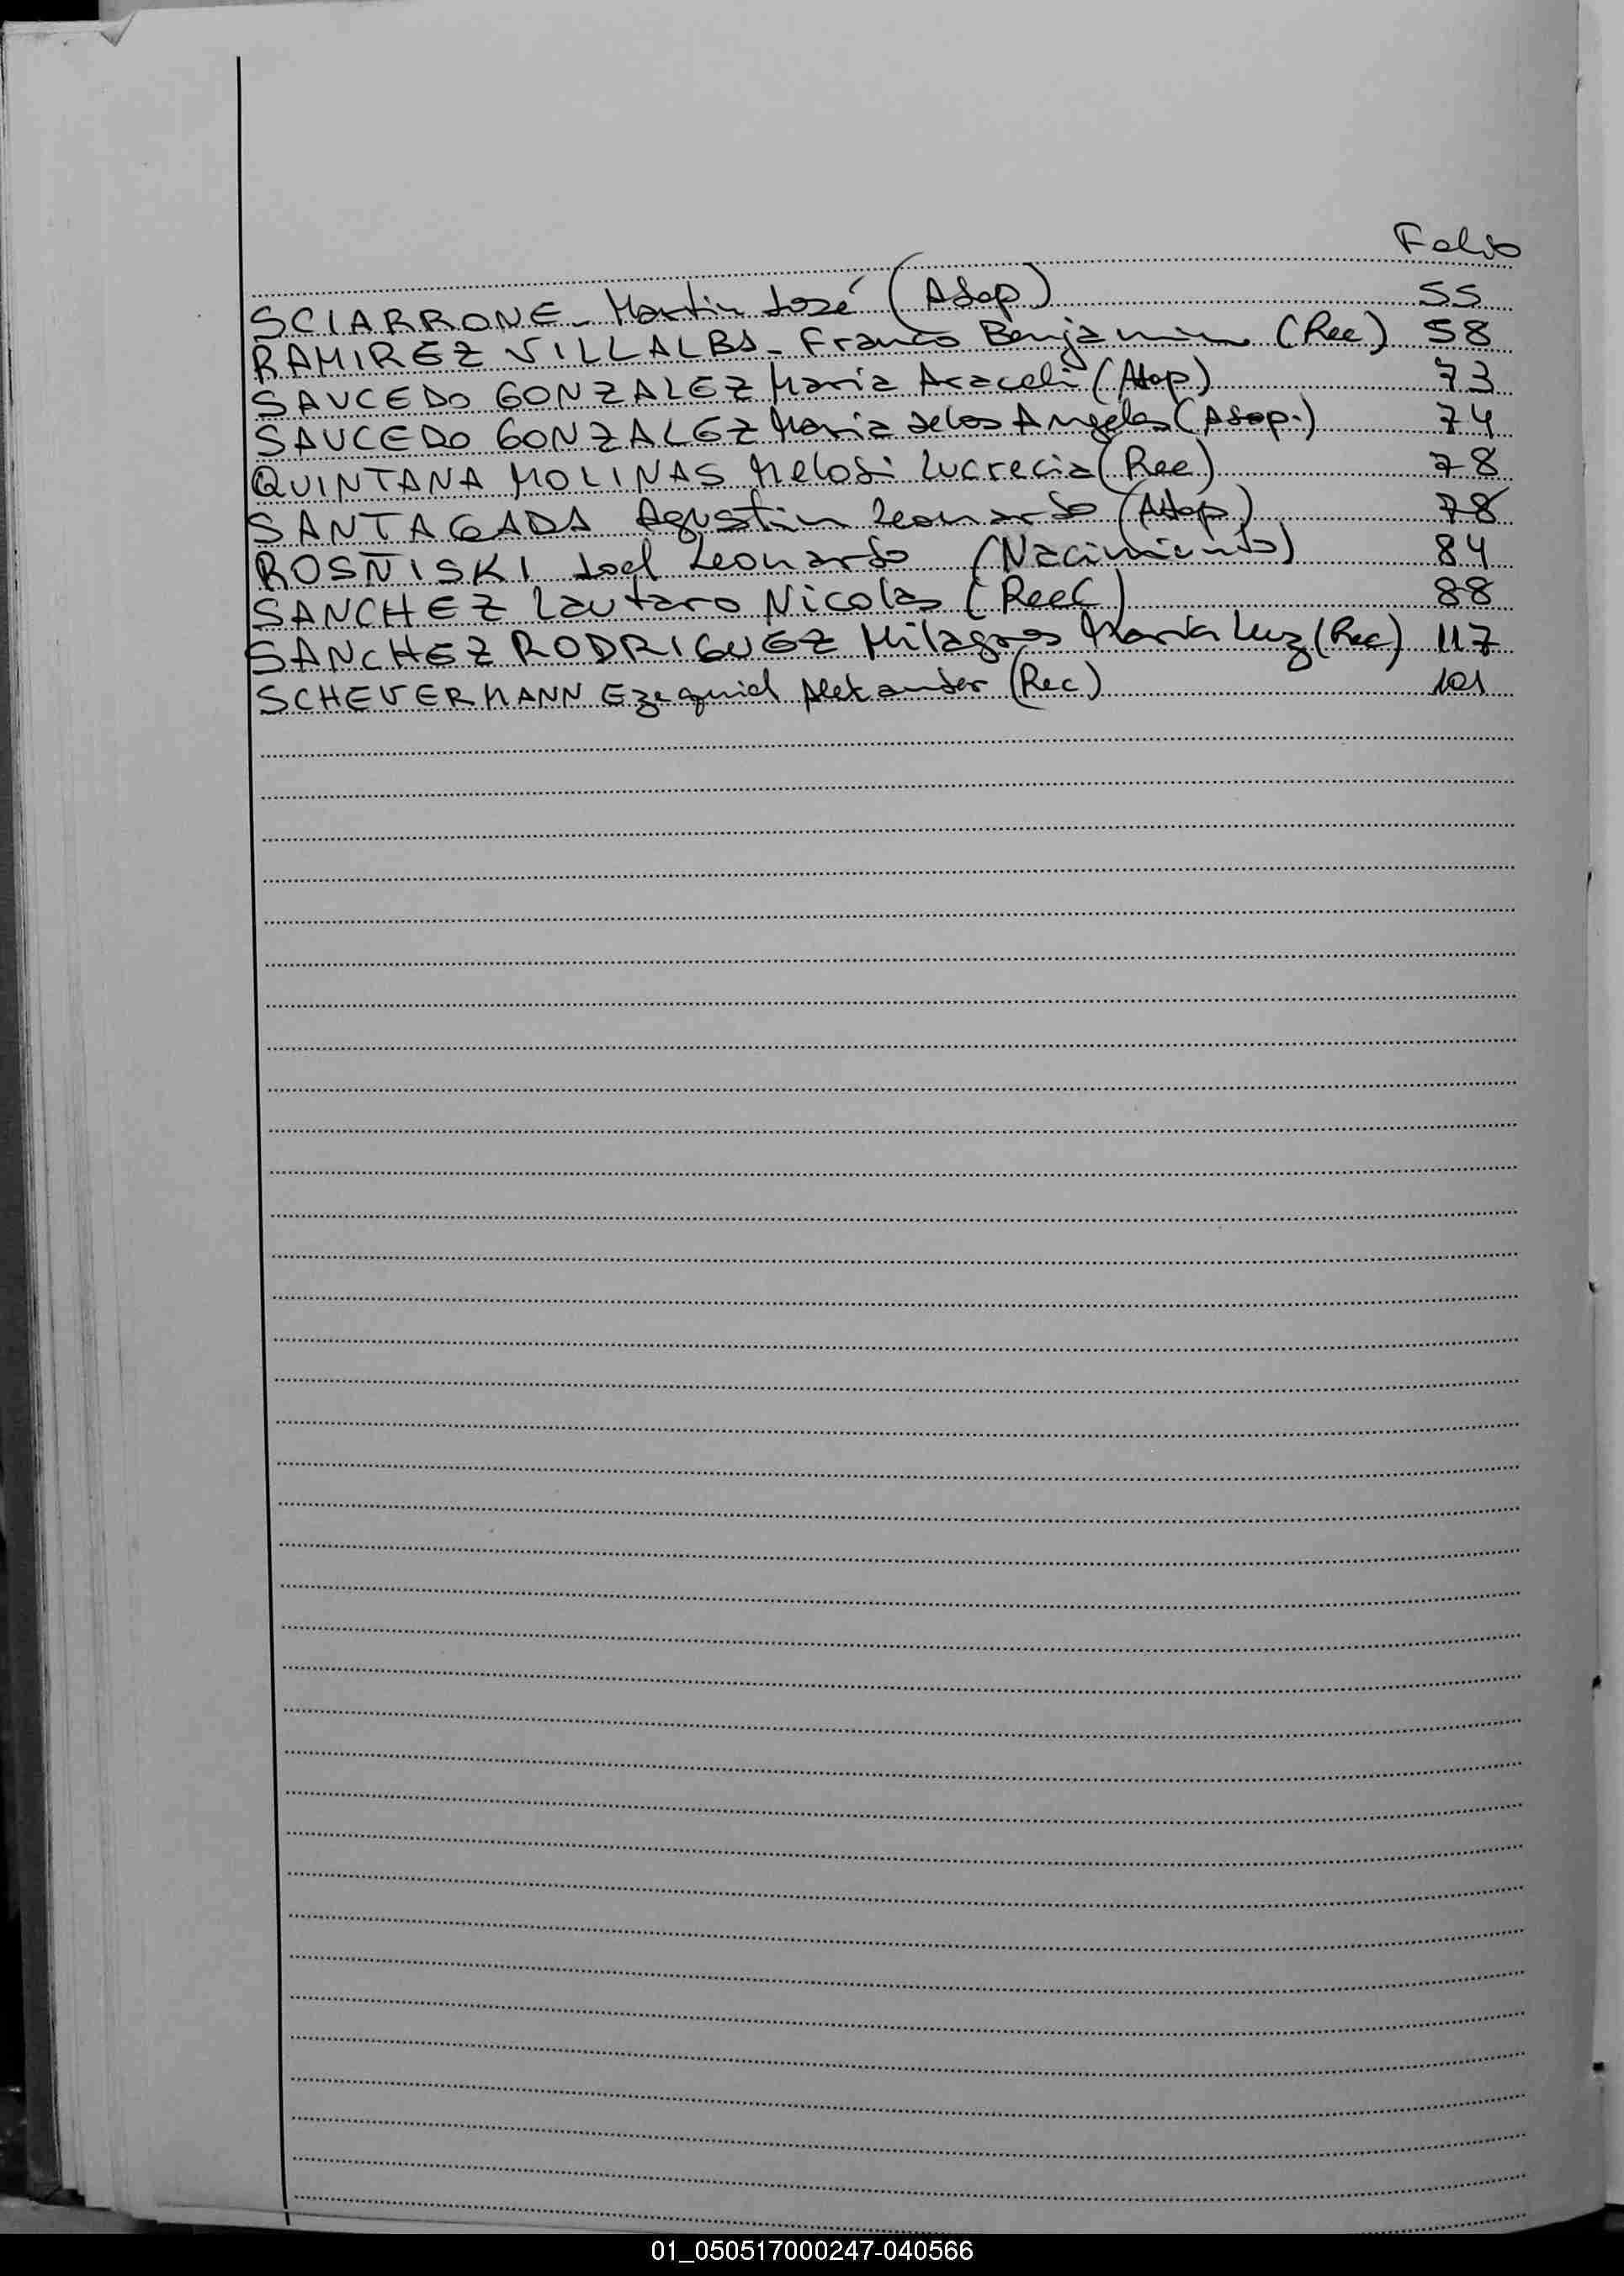 Folio
SCIARRONE - Martin José (Adop) 55
RAMIREZ VILLALBA - Franco Benjamin (Rec) 58
SAUCEDO GONZALEZ Maria Araceli (Adop) 73
SAUCEDO GONZALEZ Maria de los Angeles (Adop.) 74
QUINTANA MOLINAS Melodi Lucrecia (Rec) 78
SANTAGADA Agustin Leonardo (Adop) 78
ROSÑISKI Joel Leonardo (Nacimiento) 84
SANCHEZ Lautaro Nicolas (Rec) 88
SANCHEZ RODRIGUEZ Milagros María Luz (Rec) 117
SCHEUERMANN Ezequiel Alexander (Rec) 101
01_050517000247-040566